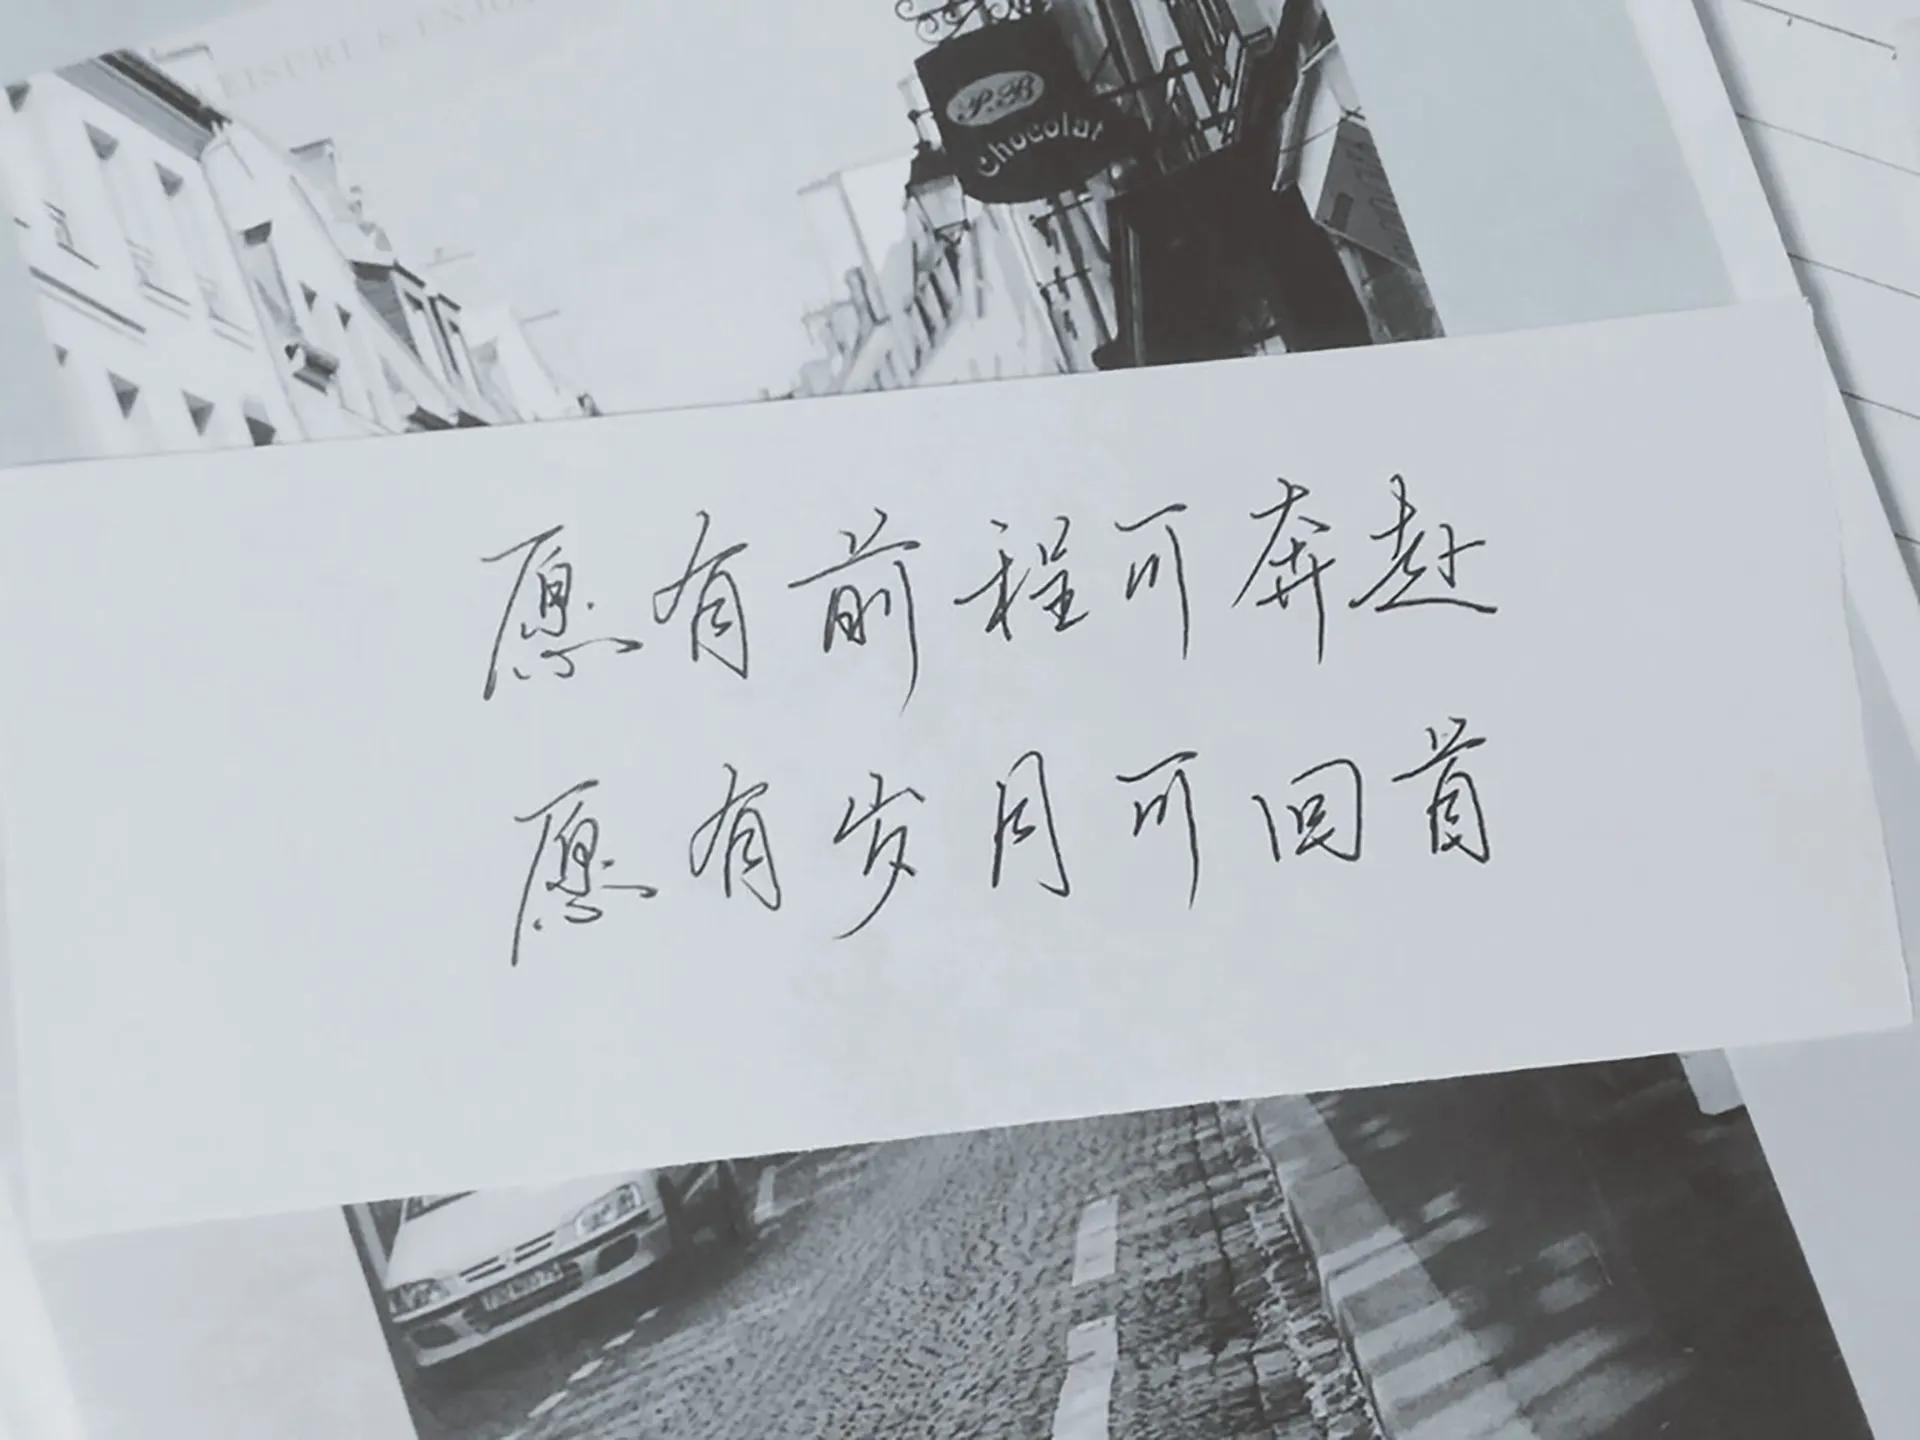 LEISURE & ENJO
P.B
chocolat
愿有前程可奔赴
愿有岁月可回首